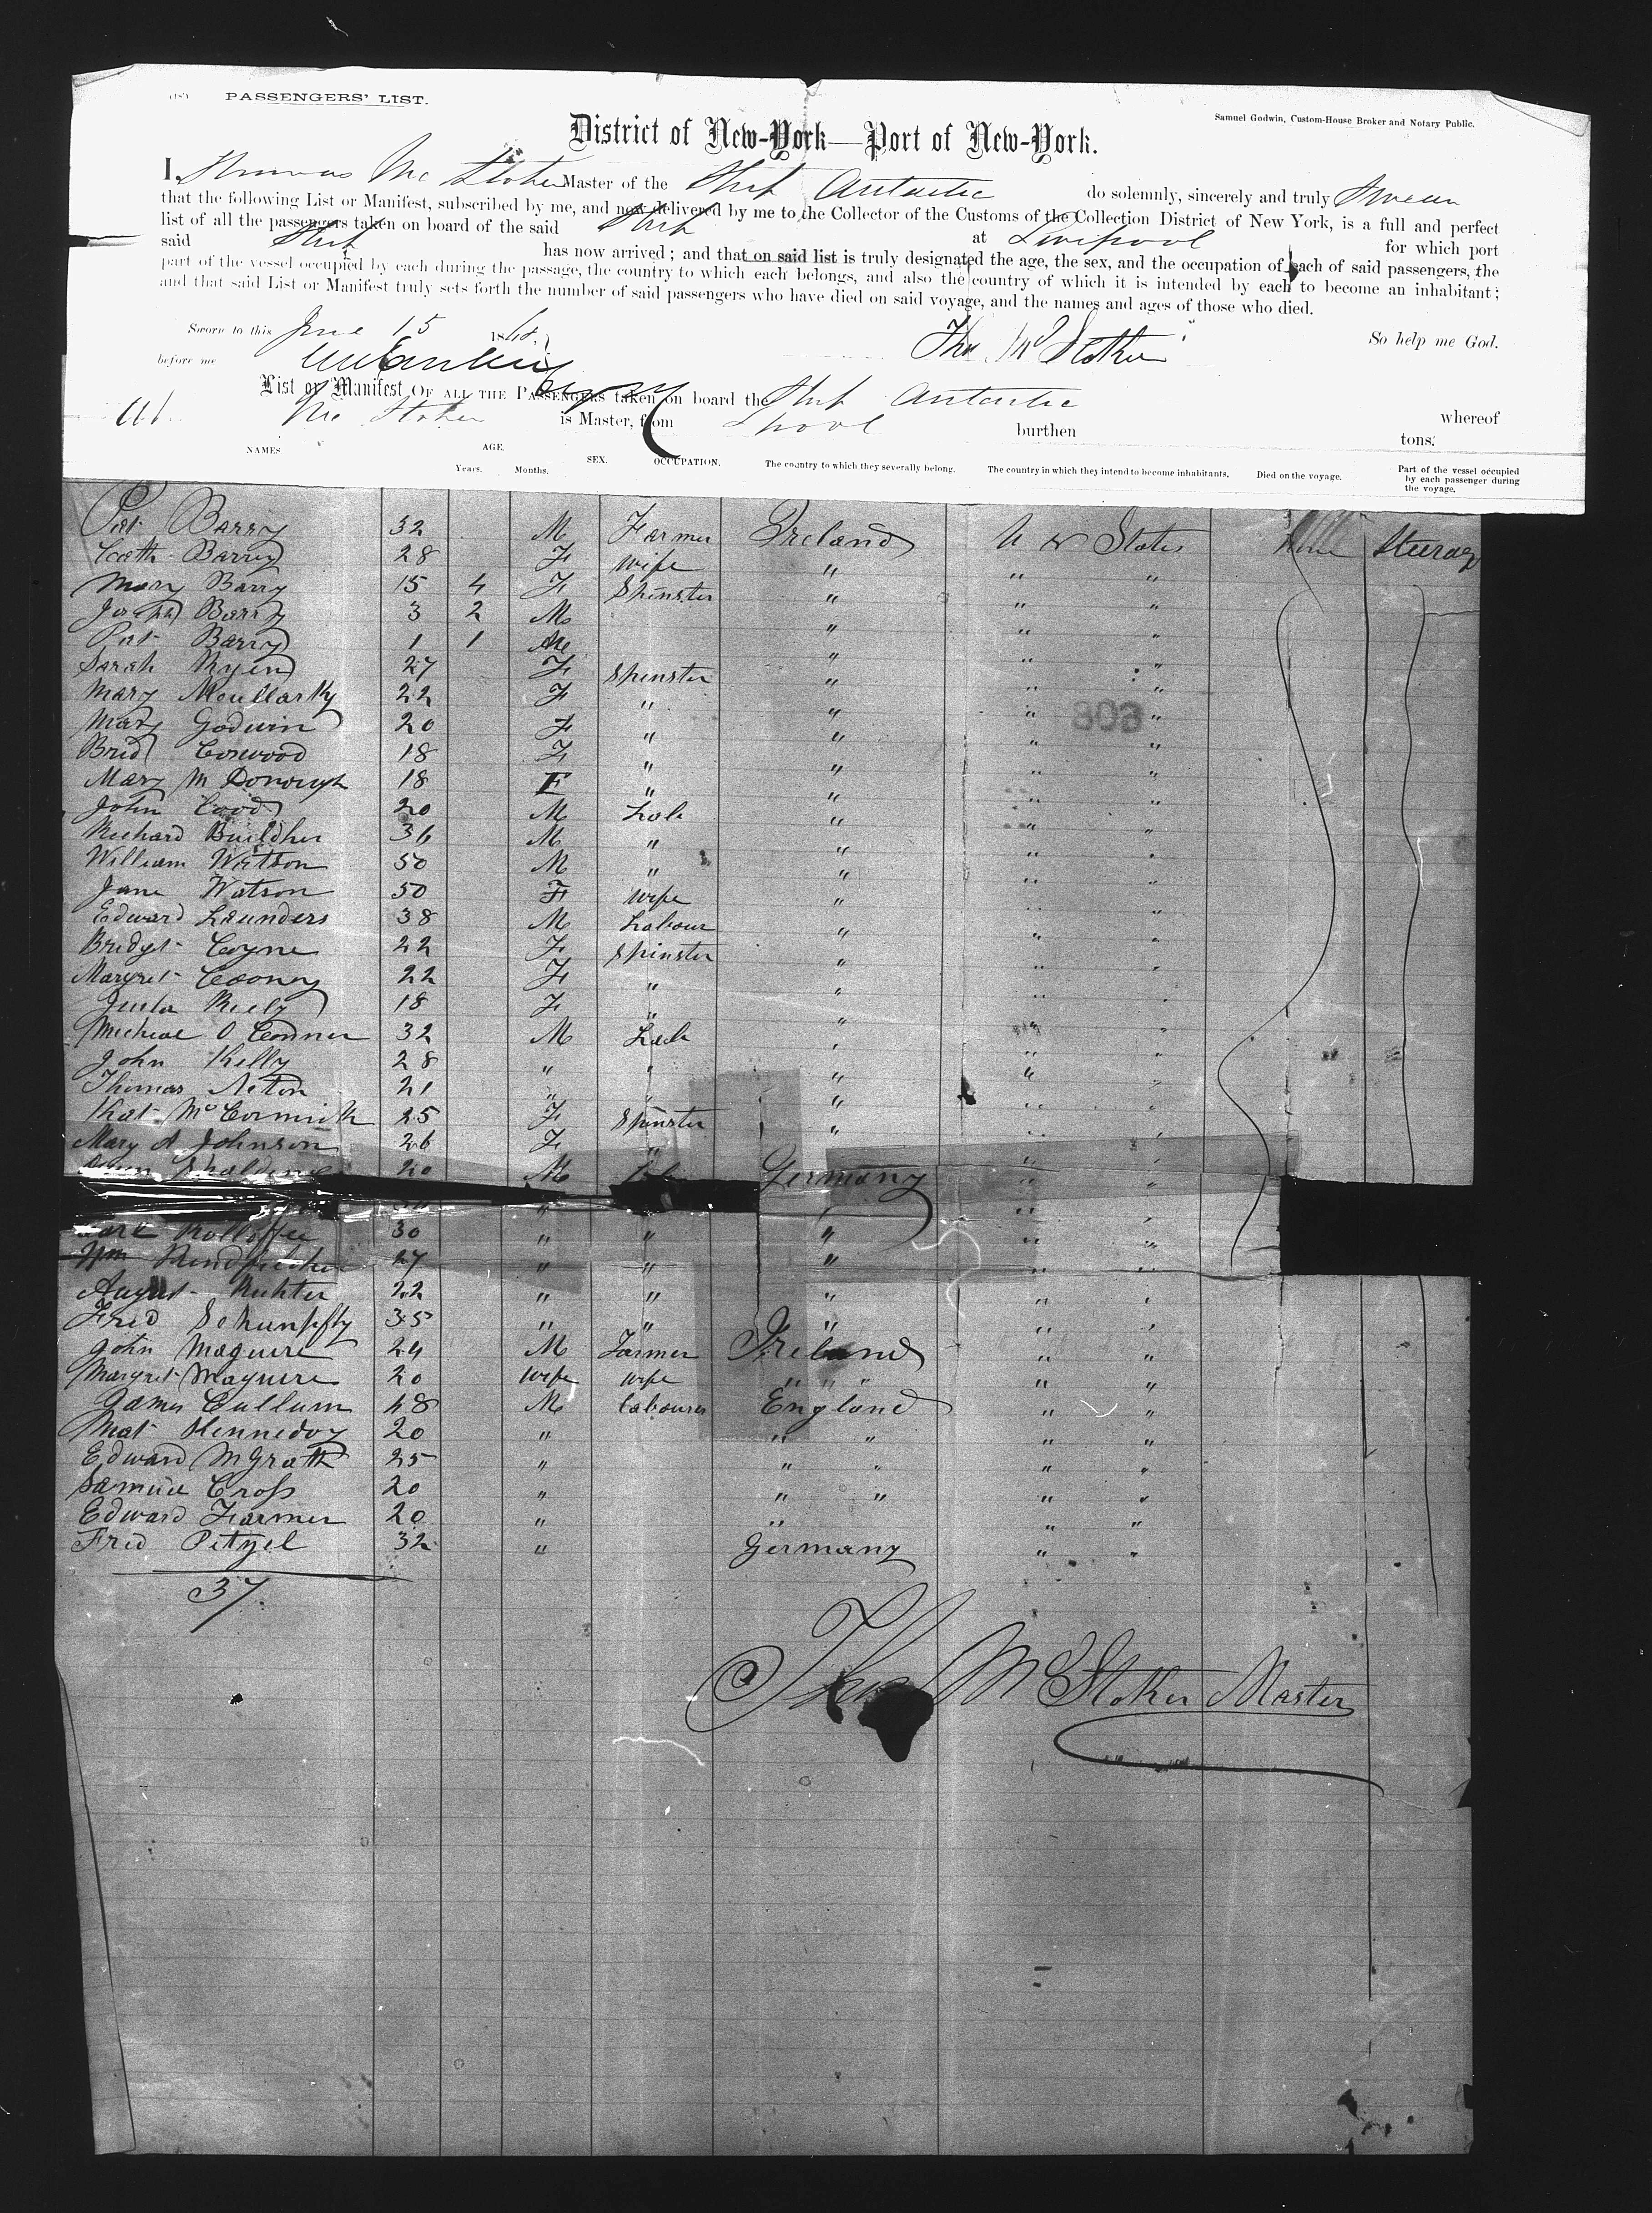 PASSENGERS' LIST.
Samuel Godwin, Custom-House Broker and Notary Public.
District of New-York—Port of New-York.
I, Thomas Mc Stoker Master of the Ship Antarctic do solemnly, sincerely and truly Swear
that the following List or Manifest, subscribed by me, and now delivered by me to the Collector of the Customs of the Collection District of New York, is a full and perfect
list of all the passengers taken on board of the said Ship at Liverpool for which port
said Ship has now arrived; and that on said list is truly designated the age, the sex, and the occupation of each of said passengers, the
part of the vessel occupied by each during the passage, the country to which each belongs, and also the country of which it is intended by each to become an inhabitant;
and that said List or Manifest truly sets forth the number of said passengers who have died on said voyage, and the names and ages of those who died.
So help me God.
Sworn to this June 15 186
before me
Tho Mc Stoker
List or Manifest OF ALL THE PASSENGERS taken on board the Ship Antarctic whereof
Mc Stoker is Master, from Lpool burthen tons.
NAMES AGE. Years. Months. SEX. OCCUPATION. The country to which they severally belong. The country in which they intend to become inhabitants. Died on the voyage. Part of the vessel occupied by each passenger during the voyage.
Pat Barry 32 M Farmer Ireland U States None Steerage
Cath Barry 28 F Wife " " "
Mary Barry 15 4 F Spinster " " "
Joseph Barry 3 2 M " " "
Pat Barry 1 1 " " "
Sarah Ryen 27 F Spinster " " "
Mary Moullarky 22 F " " " "
Mary Godwin 20 F " " " "
Brid Conwood 18 F " " " "
Mary McDonough 18 F " " " "
John Cood 20 M Lab " " "
Richard Buildher 36 M " " " "
William Watson 50 M " " " "
Jane Watson 50 F Wife " " "
Edward Launders 38 M Labour " " "
Bridget Coyne 22 F Spinster " " "
Margret Coony 22 F " " " "
Julia Riely 18 F " " " "
Micheal O Connor 32 M Lab " " "
John Kelly 28 " " " " "
Thomas Neton 21 " " " " "
Kat McCormick 25 F Spinster " " "
Mary A Johnson 26 F " " " "
20 M Germany " "
" " " " "
Rolloffee 30 " " " " "
Wm 27 " " " " "
August Richter 22 " " " " "
Fred 35 " " " " "
John Maguire 24 M Farmer Ireland " "
Margret Maguire 20 Wife Wife " " " " "
James Cullum 48 M Labourer England " "
Mat Kennedy 20 " " " " "
Edward McGrath 25 " " " " "
Samuel Cross 20 " " " " "
Edward Farmer 20 " " " "
Fred Petzel 32 " Germany " "
37
Thos Mc Stoker Master